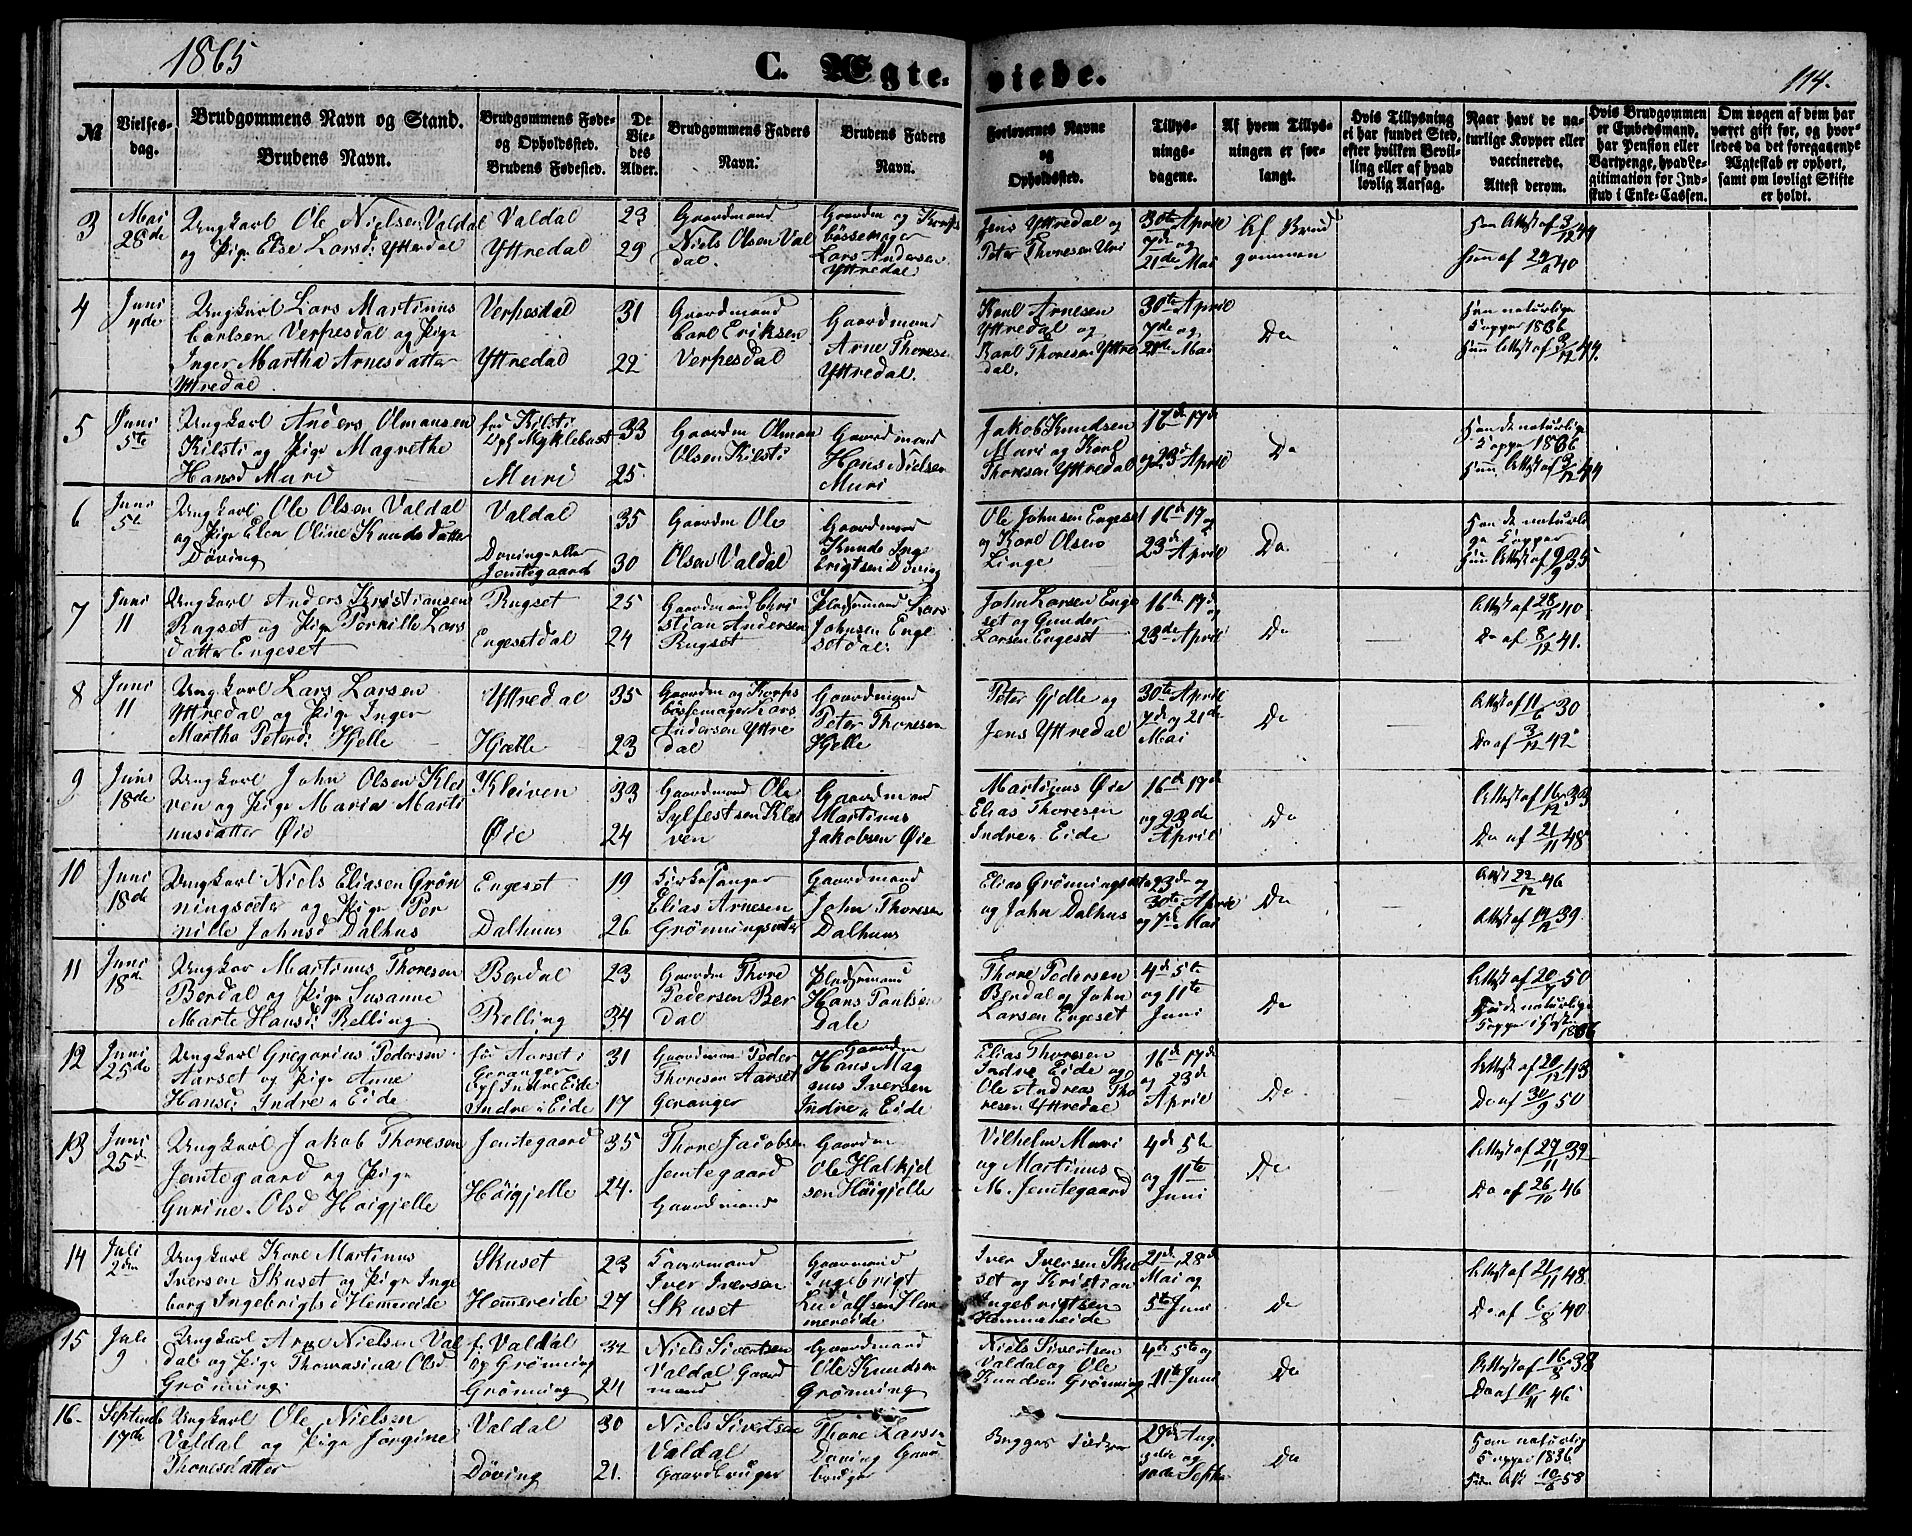 1865
C. Ægte-viede.
114.
№
Vielses-dag.
Brudgommens Navn og Stand.
Brudens Navn.
Brudgommens Føde- og Opholdssted.
Brudens Fødested.
De Viedes Alder.
Brudgommens Faders Navn.
Brudens Faders Navn.
Forlovernes Navne og Opholdssted.
Tillysningsdagene.
Af hvem Tillysningen er forlangt.
Hvis Tillysning ei har fundet Sted, efter hvilken Bevilling eller af hvad lovlig Aarsag.
Naar havt de naturlige Kopper eller vaccinerede.
Attest derom.
Hvis Brudgommen er Embedsmand, har Pension eller Vartpenge, hvad Legitimation for Indskud i Enke-Cassen.
Om nogen af dem har været gift før, og hvorledes da det foregaaende Ægteskab er ophørt, samt om lovligt Skifte er holdt.
3 Mai 28de
Ungkarl Ole Nielsen Valdal
og Pige Else Larsd: Yttredal
Valdal
Yttredal
23
29
Gaardmand
Niels Olsen Val
dal.
Gaardm og Korps
bøssemager
Lars Andersen
Yttredal
Jens Yttredal og
Peter Thoresen Uri
30te April
7de og
21de Mai
Af Brud
gommen
Han Attest af 3/12 44
Hun af 29/6 40
4 Juni 4de
Ungkarl Lars Martinus
Carlsen Verpesdal og Pige
Inger Martha Arnesdatter
Yttredal
Verpesdal
Yttredal
31
22
Gaardmand
Carl Eriksen
Verpesdal
Gaardmand
Arne Thorese
Yttredal.
Karl Arnesen
Yttredal og
Karl Thoresen Yttre
dal.
30te April
7de og
21de Mai
Do
Han naturlige
Kopper 1836
Hun Attest af 3/12 44.
5 Juni 5te
Ungkarl Anders Olmansen
Kilsti og Pige Magrethe
Hansd Muri
før Kilsti
Opf Myklebust
Muri
33
25
Gaardm Olman
Olsen Kilsti
Gaardmand
Hans Nielsen
Muri
Jakob Knudsen
Muri og Karl
Thoresen Yttredal
16de 17de
og 23de April
Do
Han de naturlige
Kopper 1836
Hun Attest af 3/12 44
6 Juni 5te
Ungkarl Ole Olsen Valdal
og Pige Elen Oline Knudsdatter
Døving
Valdal
Døving eller
Jemtegaard
35
30
Gaardm Ole
Olsen Valdal
Gaardmand
Knud Inge
brigtsen Døving
Ole Johnsen Engeset
og Karl Olsen
Linge
16de 17de og
23de April
Do.
Han de naturli
ge Kopper
Hun Attest af 9/9 35
7 Juni 11
Ungkarl Anders Kristiansen
Rugset og Pige Pernille Lars
datter Engeset
Rugset
Engesetdal
25
24
Gaardmand Chri
stian Andersen
Rugset
Pladsemand Lars
Johnsen Enge
setdal.
John Larsen Enge
set og Gunder
Larsen Engeset
16de 17de og
23de April
Do
Attest af 28/11 40
Do af 8/12 41.
8 Juni 11
Ungkarl Lars Larsen
Yttredal og Pige Inger
Martha Petersd: Hjelle
Yttredal
Hjelle
35
23
Gaardm og Korps
bøssemager Lars
Andersen Yttre
dal
Gaardmand
Peter Thoresen
Hjelle
Peter Gjelle og
Jens Yttredal
30te April
7de og 21de
Mai
Do
Attest af 11/6 30
Do af 3/12 42
9 Juni 18de
Ungkarl John Olsen Klei
ven og Pige Maria Marti
nusdatter Øie
Kleiven
Øie
33
24
Gaardmand Ole
Sylfestsen Klei
ven
Gaardmand
Martinus
Jakobsen Øie
Martinus Øie
Elias Thoresen
Indre Eide
16de 17de
og 23de
April
Do
Attest af 16/12 33
Do af 21/11 48
10 Juni 18de
Ungkarl Niels Eliasen Grøn
ningsæter og Pige Per
nille Johnsd Dalhus
Engeset
Dalhuus
19
26
Kirkesanger
Elias Arnesen
Grønningsæter
Gaardmand
John Thoresen
Dalhuus
Elias Grønningsæter
og John Dalhus
23de og
30te April
og 7de Mai
Do
Attest 22/12 46
Attest af 19/12 39.
11 Juni 18de
Ungkar Martinus Thoresen
Berdal og Pige Susanne
Marte Hansd: Relling
Berdal
Relling
23
34
Gaardm Thore
Pedersen Ber
dal
Pladsemand
Hans Poulsen
Dale
Thore Pedersen
Berdal og John
Larsen Engeset
4de 5te
og 11te
Juni
Do
Attest af 20/7 50
Hun de naturlige
Kopper i Høsten
1836
12 Juni 25de
Ungkarl Gregorius Pedersen
Aarset og Pige Anne
Hansd: Indre Eide
før Aarset i
Geranger
Opf Indre Eide
Indre Eide
31
17
Gaardmand Peder
Thoresen Aarset
Geranger
Gaardm
Hans Mag
nus Iversen
Indre Eide
Elias Thoresen
Indre Eide og
Ole Andreas Tho
resen Yttredal
16de 17de
og 23de
April
Do
Attest af 20/12 43
Do af 30/9 50
13 Juni 25de
Ungkarl Jakob Thoresen
Jemtegaard og Pige
Gurine Olsd Høigjelle
Jemtegaard
Høigjelle
35
24.
Thore Jacobsen
Jemtegaard
Gaardmand
Gaardm
Ole Halkjel
sen Høigjelle
Vilhelm Muri
og Martinus
M. Jemtegaard
4de 5te
og 11te
Juni
Do
Attest af 27/11 32
Do af 26/10 46
14 Juli 2den
Ungkarl Karl Martinus
Iversen Skuset og Pige Inge
borg Ingebrigtsd Hemmereide
Skuset
Hemmereide
23
27
Gaardmand
Iver Iversen
Skuset
Gaardmand
Ingebrigt
Ludolfsen Hem
mereide
Iver Iversen Sku
set og Kristian
Ingebrigtsen
Hemmereide
21de 28de
Mai og
5te Juni
Do
Attest af 21/11 48.
Do af 6/8 40
15 Juli 9
Ungkarl Arne Nielsen Val
dal og Pige Thomasina Olsd
Grønning
f. Valdal
op Grønning
Grønning
32
21
Niels Sivertsen
Valdal Gaard
mand
Gaardmand
Ole Knudsen
Grønning
Niels Sivertsen
Valdal og Ole
Knudsen Grønning
4de 5te og
11te Juni
Do
Attest af 16/8 38
Do af 10/11 46
16. Septemb 17de
Ungkarl Ole Nielsen
Valdal og Pige Jørgine
Thoresdatter
Valdal
Døving
30
21.
Niels Sivertsen
Valdal
Gaardbruger
Thore Larsen
Døving Gaard
bruger
Begges Fædre
Aug.
10de Septbr
Do
Han naturlig
Kopper 1836
Hun Att 10/6 58